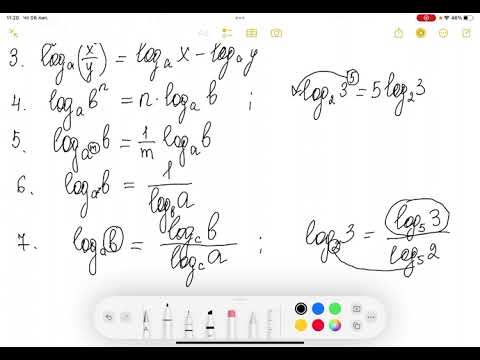 11:20 Чт 06 лип.
46 %
3. log_a(x/y) = log_a x - log_a y
4. log_a b^n = n · log_a b ; log_2 3^5 = 5 log_2 3
5. log_{a^m} b = 1/m log_a b
6. log_a b = 1/log_b a
7. log_a b = log_c b / log_c a ; log_2 3 = log_5 3 / log_5 2